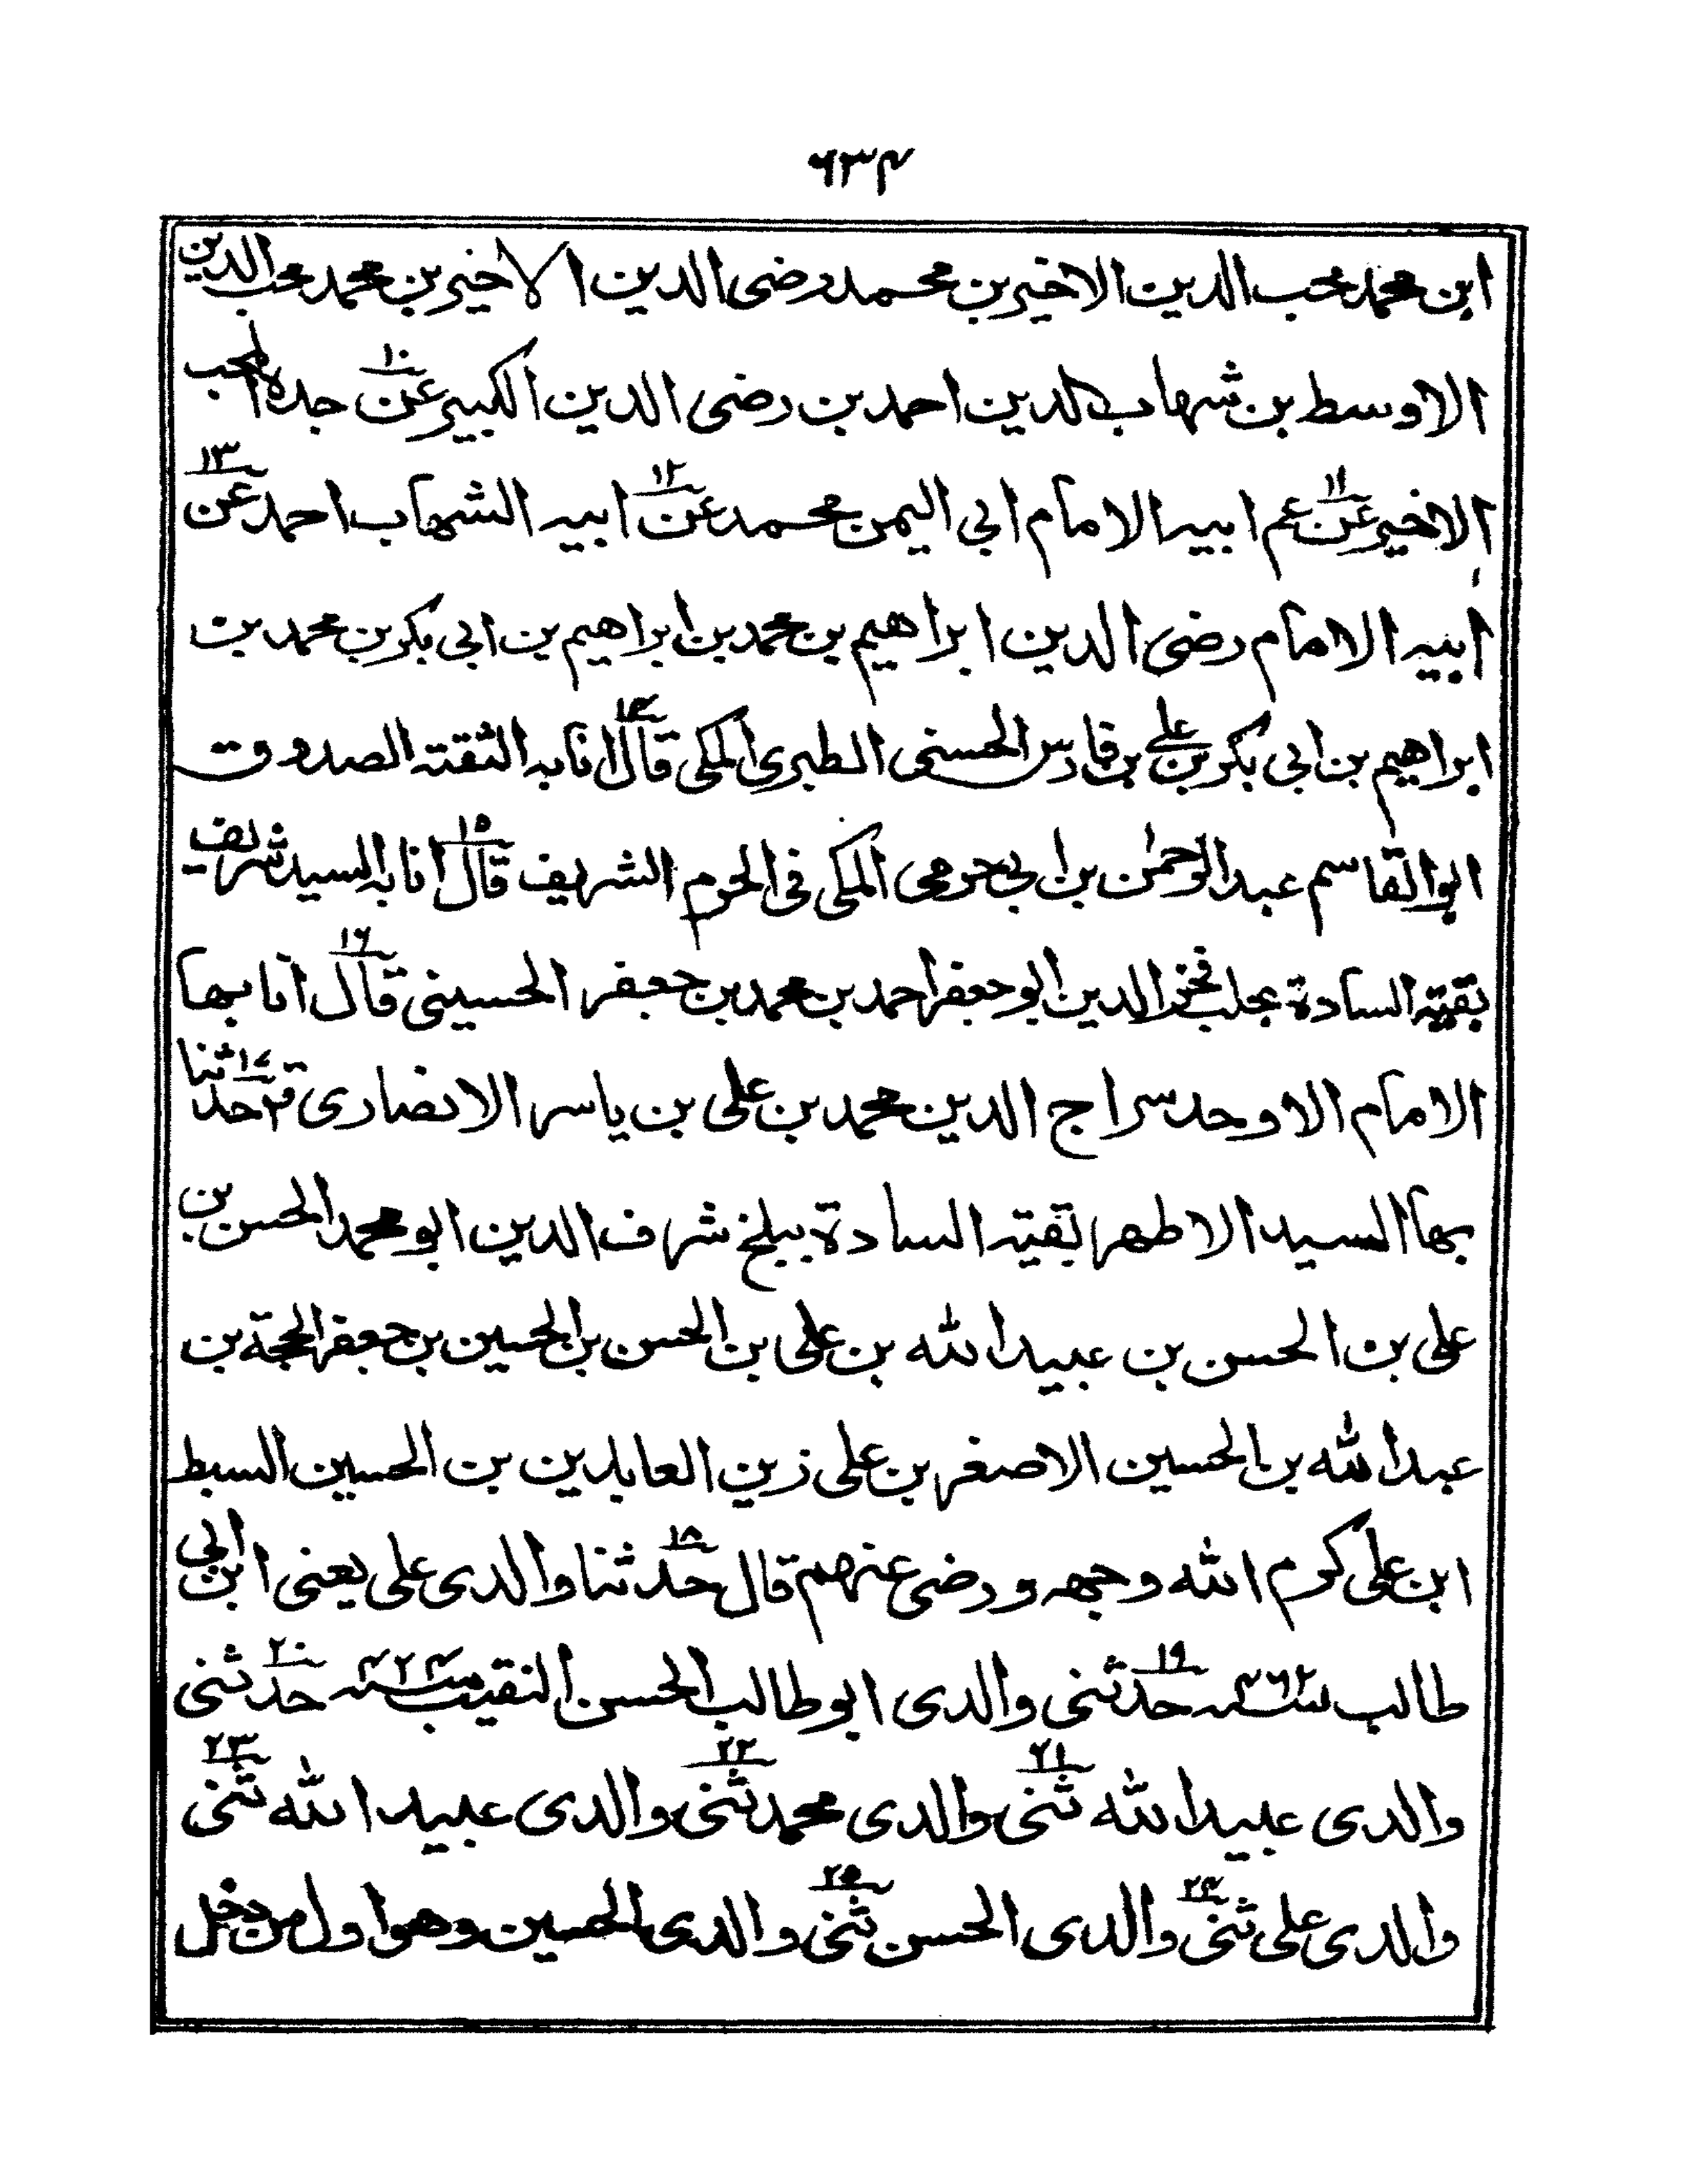 ٦٣٤
ابن محمد محب الدين الاخير بن محمد رضى الدين الاخير بن محمد محب الدين
الاوسط بن شهاب الدين احمد بن رضى الدين الكبير عن ١٠ جده المحب
الاخير عن ١١ عم ابيه الامام ابي اليمن محمد عن ١٢ ابيه الشهاب احمد عن ١٣
ابيه الامام رضى الدين ابراهيم بن محمد بن ابراهيم بن ابي بكر بن محمد بن
ابراهيم بن ابي بكر بن على بن فارس الحسنى الطبرى المكى قال ١٤ انا به الثقته الصدوق
ابو القاسم عبد الرحمٰن بن ابي حرمى المكى فى الحرم الشريف قال ١٥ انا به السيد شريف
بقيته السادة بحلب فخر الدين ابو جعفر احمد بن محمد بن جعفر الحسينى قال ١٦ انا بها
الامام الاوحد سراج الدين محمد بن على بن ياسر الانصارى قر حدثنا ١٧
بها السيد الاطهر بقيته السادة ببلخ شرف الدين ابو محمد الحسن بن
على بن الحسن بن عبيد الله بن على بن الحسن بن الحسين بن جعفر الحجة بن
عبد الله بن الحسين الاصغر بن على زين العابدين بن الحسين السبط
ابن على كرم الله وجهه ورضى عنهم قال حدثنا ١٨ والدى على يعنى ابن ابي
طالب سنه ٤٦٢ حدثنى ١٩ والدى ابو طالب الحسن النقيب سنه ٤٢٤ حدثنى ٢٠
والدى عبيد الله ثنى ٢١ والدى محمد ثنى ٢٢ والدى عبيد الله ثنى ٢٣
والدى على ثنى ٢٤ والدى الحسن ثنى ٢٥ والدى الحسين وهو اول من دخل